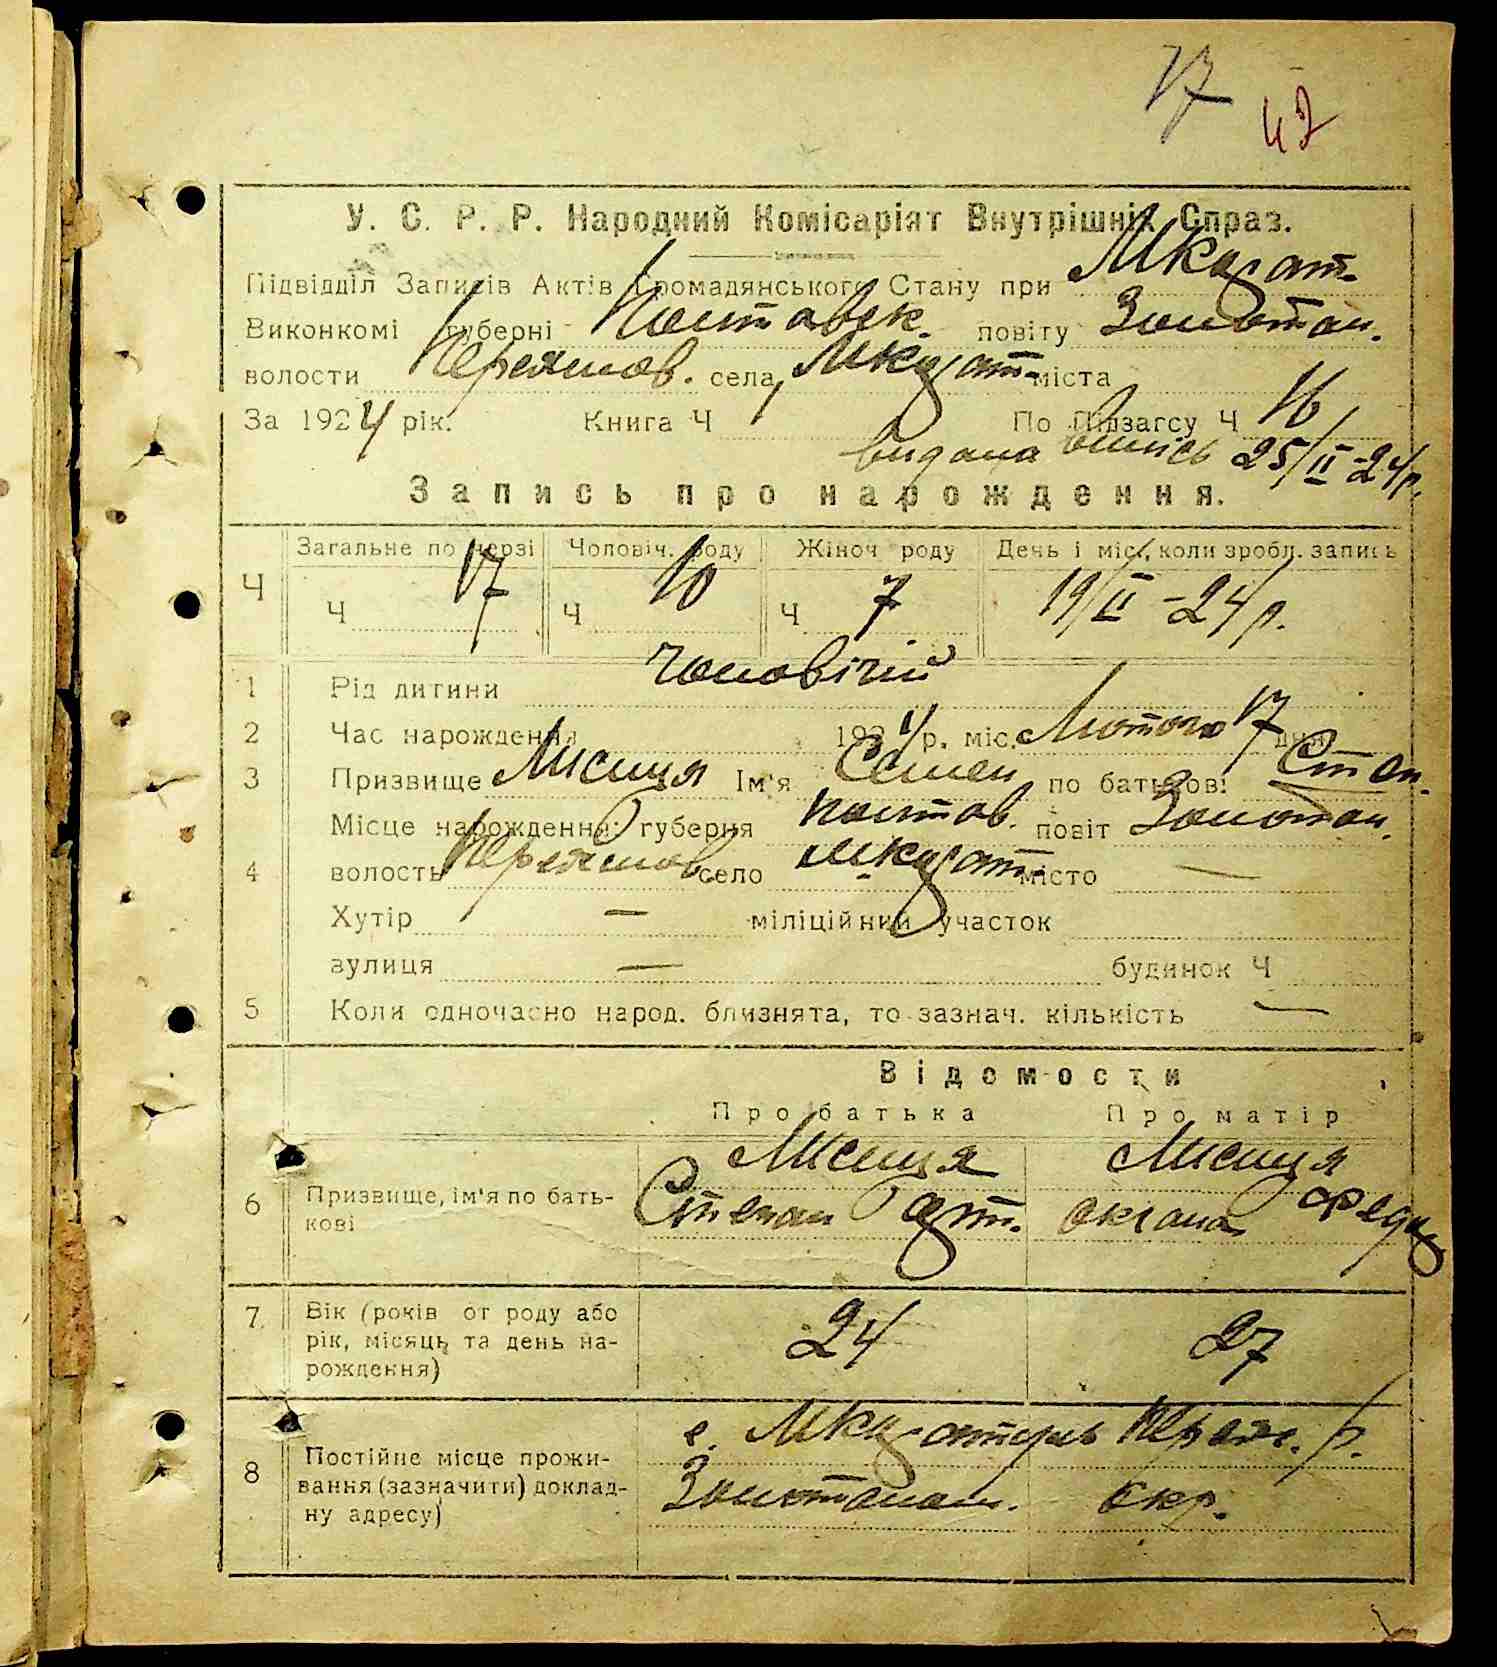 17
42
У. С. Р. Р. Народний Комісаріят Внутрішніх Справ.
Підвідділ Записів Актів Громадянського Стану при
Виконкомі губерні Полтавск. повіту Золотон.
волости Переяслов. села міста
За 1924 рік. Книга Ч По Підзагсу Ч 16
видана випись 25/II-24 р.
Запись про нарождення.
Загальне по черзі Чоловіч. роду Жіноч роду День і міс., коли зробл. запись
Ч Ч 17 Ч 10 Ч 7 19/II-24 р.
1 Рід дитини чоловічий
2 Час нарождення 1924 р. міс. Лютого 17 дня
3 Призвище Лисиця Ім'я Семен по батькові Степ.
Місце нарождення: губерня Полтав. повіт Золотон.
4 волость Переяслов село місто —
Хутір — міліційний участок
вулиця — будинок Ч
5 Коли одночасно народ. близнята, то зазнач. кількість —
Відомости
Про батька Про матір
6 Призвище, ім'я по бать-
кові
Лисиця Лисиця
Степан Оксана Федор
7 Вік (років от роду або
рік, місяць та день на-
рождення)
24 27
8 Постійне місце прожи-
вання (зазначити) доклад-
ну адресу)
с. Переяс. р.
Золотоном. окр.